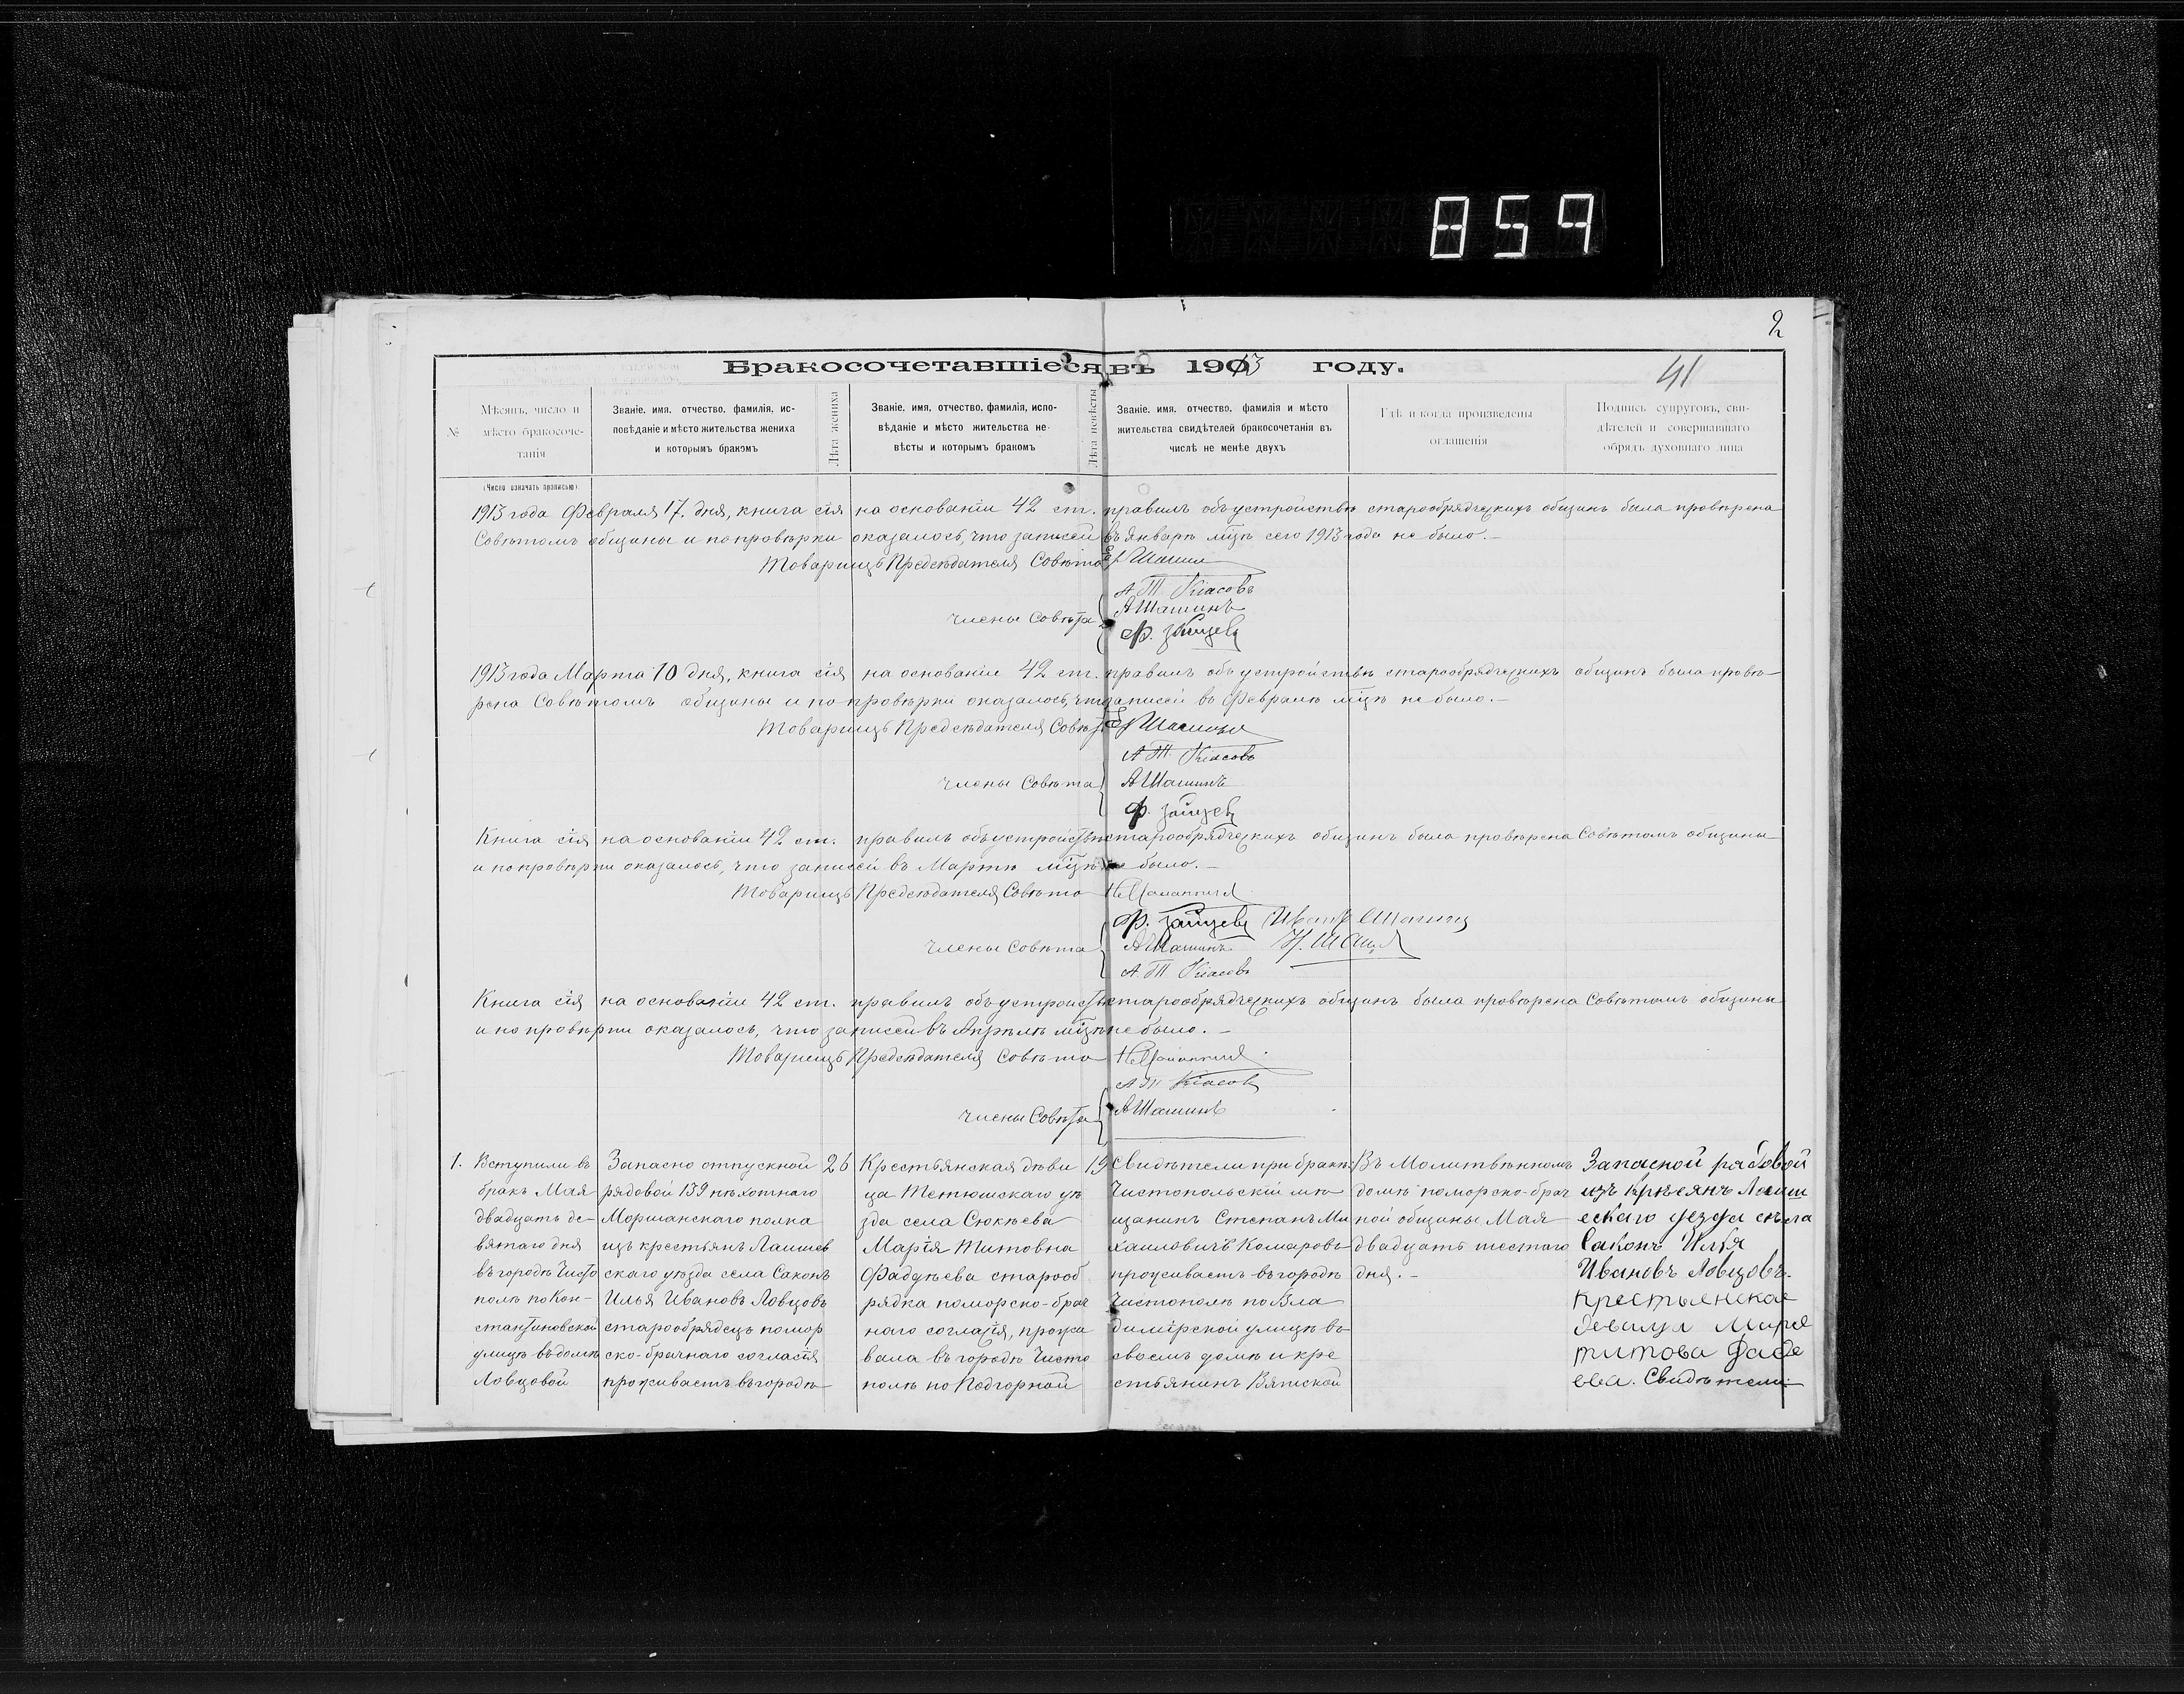 859
2
Бракосочетавшіеся въ 1913 году.
41
№
Мѣсяцъ, число и мѣсто бракосоче-
танія
(Число означать прописью)
Званіе, имя, отчество, фамилія, ис-
повѣданіе и мѣсто жительства жениха
и которымъ бракомъ
Лѣта жениха
Званіе, имя, отчество, фамилія, испо-
вѣданіе и мѣсто жительства не-
вѣсты и которымъ бракомъ
Лѣта невѣсты
Званіе, имя, отчество, фамилія и мѣсто
жительства свидѣтелей бракосочетанія въ
числѣ не менѣе двухъ
Гдѣ и когда произведены
оглашенія
Подпись супруговъ, сви-
дѣтелей и совершавшаго
обрядъ духовнаго лица
1913 года Февраля 17. дня, книга сія на основаніи 42 ст. правилъ объ устройствѣ старообрядческихъ общинъ была провѣрена
Совѣтомъ общины и по провѣрки оказалось, что записей въ Январѣ мѣцѣ сего 1913 года не было.–
Товарищъ Предсѣдателя Совѣта
А Т Кіасовъ
Члены Совѣта
А Шашинъ
Ф. Зайцевъ
1913 года Марта 10 дня, книга сія на основаніи 42 ст. правилъ объ устройствѣ старообрядческихъ общинъ была провѣ-
рена Совѣтомъ общины и по провѣрки оказалось, что записей въ Февралѣ мѣцѣ не было.–
Товарищъ Предсѣдателя Совѣта
А Т Кіасовъ
Члены Совѣта
А Шашинъ
Ф. Зайцевъ
Книга сія на основаніи 42 ст. правилъ объ устройствѣ старообрядческихъ общинъ была провѣрена Совѣтомъ общины
и по провѣрки оказалось, что записей въ Мартѣ мѣцѣ не было.–
Товарищъ Предсѣдателя Совѣта
Ф. Зайцевъ Иванъ Шашинъ
Члены Совѣта
А Шашинъ
А Т Кіасовъ
Книга сія на основаніи 42 ст. правилъ объ устройствѣ старообрядческихъ общинъ была провѣрена Совѣтомъ общины
и по провѣрки оказалось, что записей въ Апрѣлѣ мѣцѣ не было.–
Товарищъ Предсѣдателя Совѣта
А Т Кіасовъ
Члены Совѣта
А Шашинъ
1.
Вступили въ
бракъ Мая
двадцать де-
вятаго дня
въ городѣ Чисто
полѣ по Кон-
стантиновской
улицѣ въ домѣ
Ловцовой
Запасно отпускной
рядовой 139 пѣхотнаго
Моршанскаго полка
изъ крестьянъ Лаишев
скаго уѣзда села Саконъ
Илья Ивановъ Ловцовъ
старообрядецъ помор
ско-брачнаго согласія
проживаетъ въ городѣ
26
Крестьянская дѣви
ца Тетюшскаго уѣ
зда села Сюкѣева
Марія Титовна
Фадѣева старооб
рядка поморско-брач
наго согласія, прожи
вала въ городѣ Чисто
полѣ по Подгорной
19
Свидѣтели при бракѣ:
Чистопольскій мѣ
щанинъ Степанъ Ми
хаиловичъ Комаровъ
проживаетъ въ городѣ
Чистополѣ по Вла
димірской улицѣ въ
своемъ домѣ и кре
стьянинъ Вятской
Въ Молитвѣнномъ
домѣ поморско-брач
ной общины Мая
двадцать шестаго
дня.–
Запасной рядовой
изъ крѣсянъ Лаиш
ескаго уезда села
Саконъ Илья
Ивановъ Ловцовъ.
Крестьенская
девица Мария
титова Фаде
ева. Свидѣтели